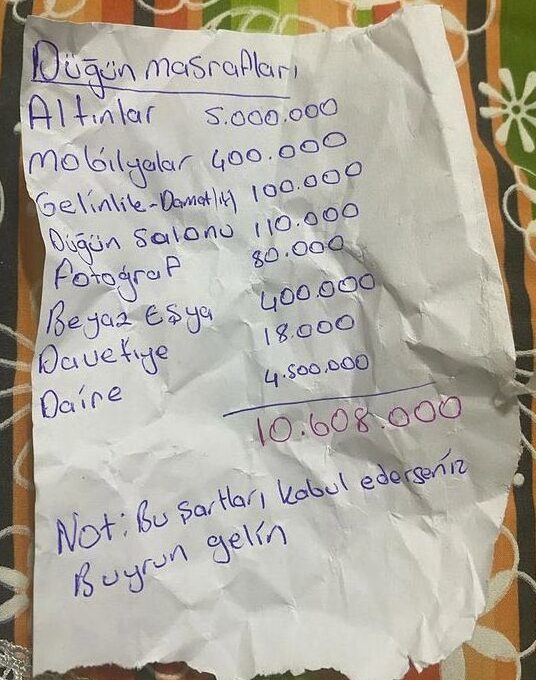 Düğün masrafları
Altınlar 5.000.000
Mobilyalar 400.000
Gelinlik-Damatlık 100.000
Düğün Salonu 110.000
Fotoğraf 80.000
Beyaz Eşya 400.000
Davetiye 18.000
Daire 4.500.000
10.608.000
Not: Bu şartları kabul ederseniz
Buyrun gelin